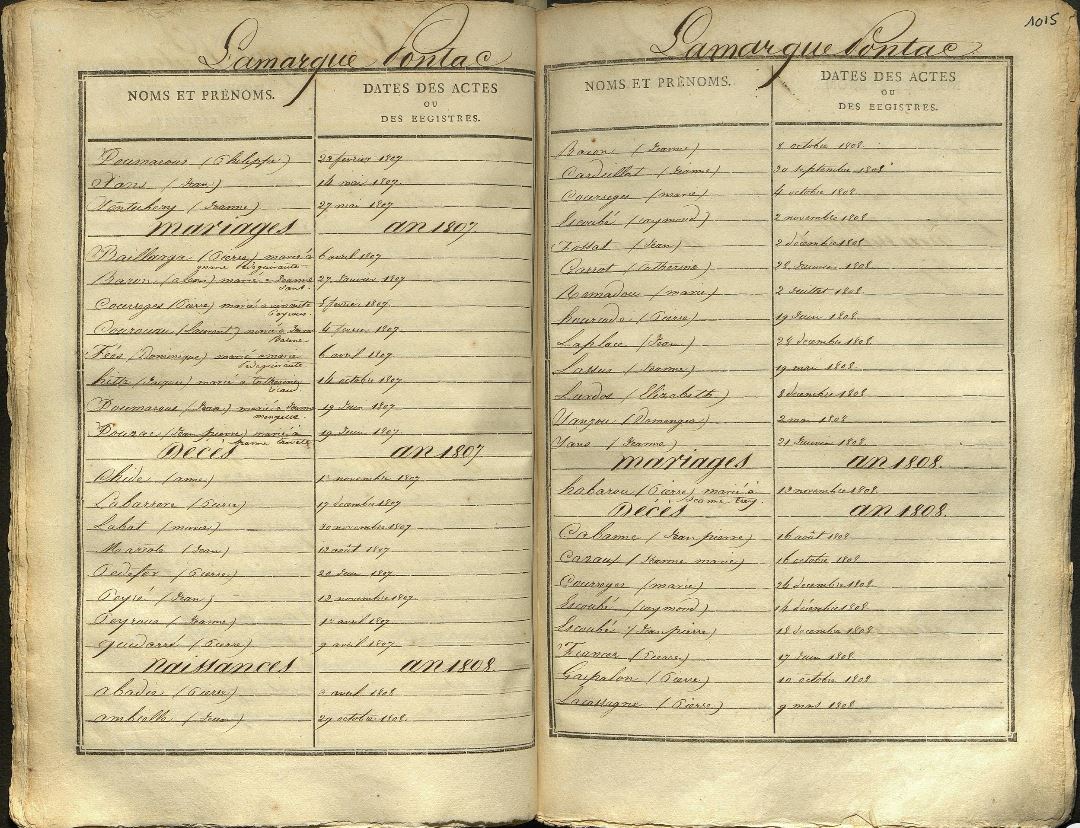 Lamarque Pontac
NOMS ET PRÉNOMS.
DATES DES ACTES
OU
DES REGISTRES.
Doumarous (Philippe) 22 février 1807
Sans (Jean) 14 mai 1807.
(Jeanne) 27 mai 1807
mariages an 1807.
(Pierre) marié à 6 avril 1807
Baron marié à Jeanne 27 Janvier 1807.
Sans.
Courreges (Pierre) marié à 5 février 1807.
(Laurent) marié à Jeanne 4 février 1807.
Barone
(Dominique) marié à marie 6 avril 1807.
marié à Catherine 14 octobre 1807.
Doumarous (Jean) marié à Jeanne 19 Juin 1807
Douzac (Jean pierre) marié à 19 Juin 1807.
Jeanne
Décès an 1807.
(anne) 1r novembre 1807
Labarrere (Pierre) 17 décembre 1807
Labat (marie) 30 novembre 1807
(Jean) 12 août 1807
(Pierre) 20 Juin 1807.
(Jean) 12 novembre 1807.
(Jeanne) 1r avril 1807
(Pierre) 9 avril 1807
Naissances an 1808.
abadie (Pierre) avril 1808
ambielle (Jean) 29 octobre 1808.
1015
Lamarque Pontac
NOMS ET PRÉNOMS.
DATES DES ACTES
OU
DES REGISTRES.
Barone (Jeanne) 8 octobre 1808.
Cardeillat (Jeanne) 20 septembre 1808
Courreges (marie) 4 octobre 1808.
Escoubé (raymond) 2 novembre 1808.
Fossat (Jean) 2 décembre 1808
Garrot (Catherine) 28 Janvier 1808.
(marie) 2 Juillet 1808
hourcade (Pierre) 19 Juin 1808.
Laplace (Jean) 28 décembre 1808.
Lassus (Jeanne) 19 mai 1808.
Lurdos (Elizabeth) 8 décembre 1808
2 mai 1808
Sans (Jeanne) 21 Janvier 1808.
mariages an 1808.
habarou (Pierre) marié à 12 novembre 1808.
Jeanne
Décès an 1808.
Cabanne (Jean pierre) 16 août 1808
(Jeanne marie) 16 octobre 1808.
Courreges (marie) 24 décembre 1808.
Escoubé (raymond) 14 décembre 1808
Escoubé (Jean pierre) 18 décembre 1808.
(Pierre) 17 Juin 1808
(Pierre) 10 octobre 1808.
Lacassagne (Pierre) 9 mars 1808